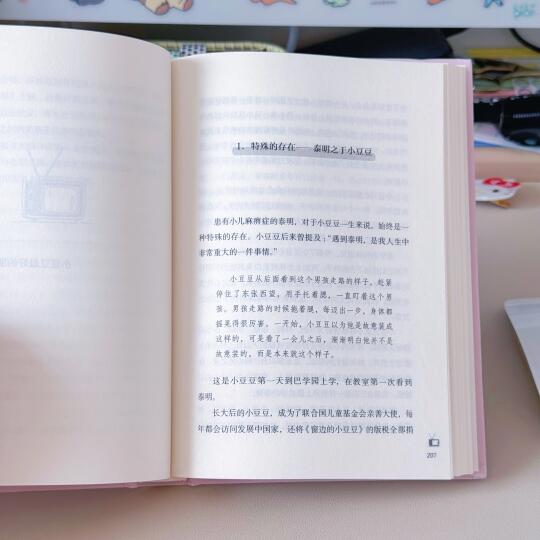 1. 特殊的存在——泰明之于小豆豆
患有小儿麻痹症的泰明，对于小豆豆一生来说，始终是一
种特殊的存在。小豆豆后来曾提及：“遇到泰明，是我人生中
非常重大的一件事情。”
小豆豆从后面看到这个男孩走路的样子，赶紧
停住了东张西望，用手托着腮，一直盯着这个男
孩。男孩走路的时候拖着腿，每迈出一步，身体都
摇晃得很厉害。一开始，小豆豆以为他是故意装成
这样的，可是看了一会儿之后，渐渐明白他并不是
故意装的，而是本来就这个样子。
这是小豆豆第一天到巴学园上学，在教室第一次看到
泰明。
长大后的小豆豆，成为了联合国儿童基金会亲善大使，每
年都会访问发展中国家，还将《窗边的小豆豆》的版税全部捐
207